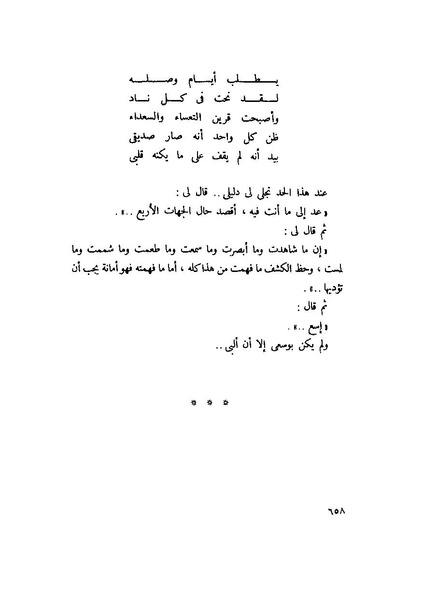 يطلب أيام وصله
لقد نحت فى كل ناد
وأصبحت قرين التعساء والسعداء
ظن كل واحد أنه صار صديقى
بيد أنه لم يقف على ما يكنه قلبى
عند هذا الحد تجلى لى دليلى .. قال لى :
« عد إلى ما أنت فيه ، أقصد حال الجهات الأربع .. » .
ثم قال لى :
« إن ما شاهدت وما أبصرت وما سمعت وما طعمت وما شممت وما
لمست ، وحظ الكشف ما فهمت من هذا كله ، أما ما فهمته فهو أمانة يجب أن
تؤديها .. » .
ثم قال :
« إسع .. » .
ولم يكن بوسعى إلا أن ألبى ..
* * *
٦٥٨